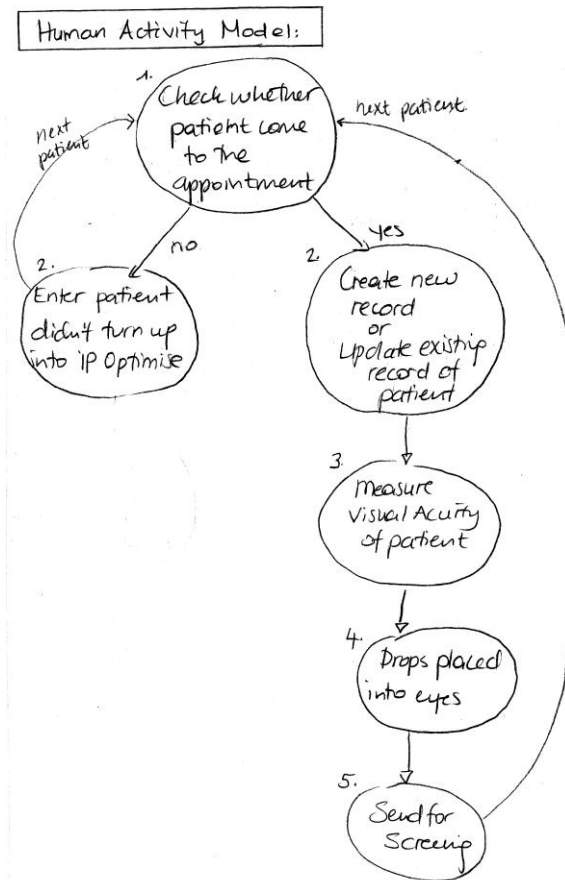 Human Activity Model:
1.
Check whether
patient come
to the
appointment
next
patient
next patient
no
yes
2.
Enter patient
didn't turn up
into iP Optimise
2.
Create new
record
or
Update existing
record of
patient
3.
Measure
Visual Acuity
of patient
4.
Drops placed
into eyes
5.
Send for
Screening